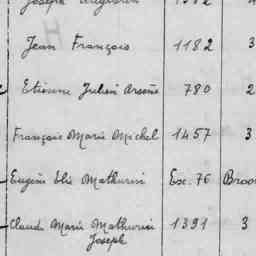 Joseph
Jean François 1182 3
Etienne Julien Arsène 780 2
François Marie Michel 1457 3
Eugène Elie Mathurin Exc. 76
Claude Marie Mathurin 1391 3
Joseph